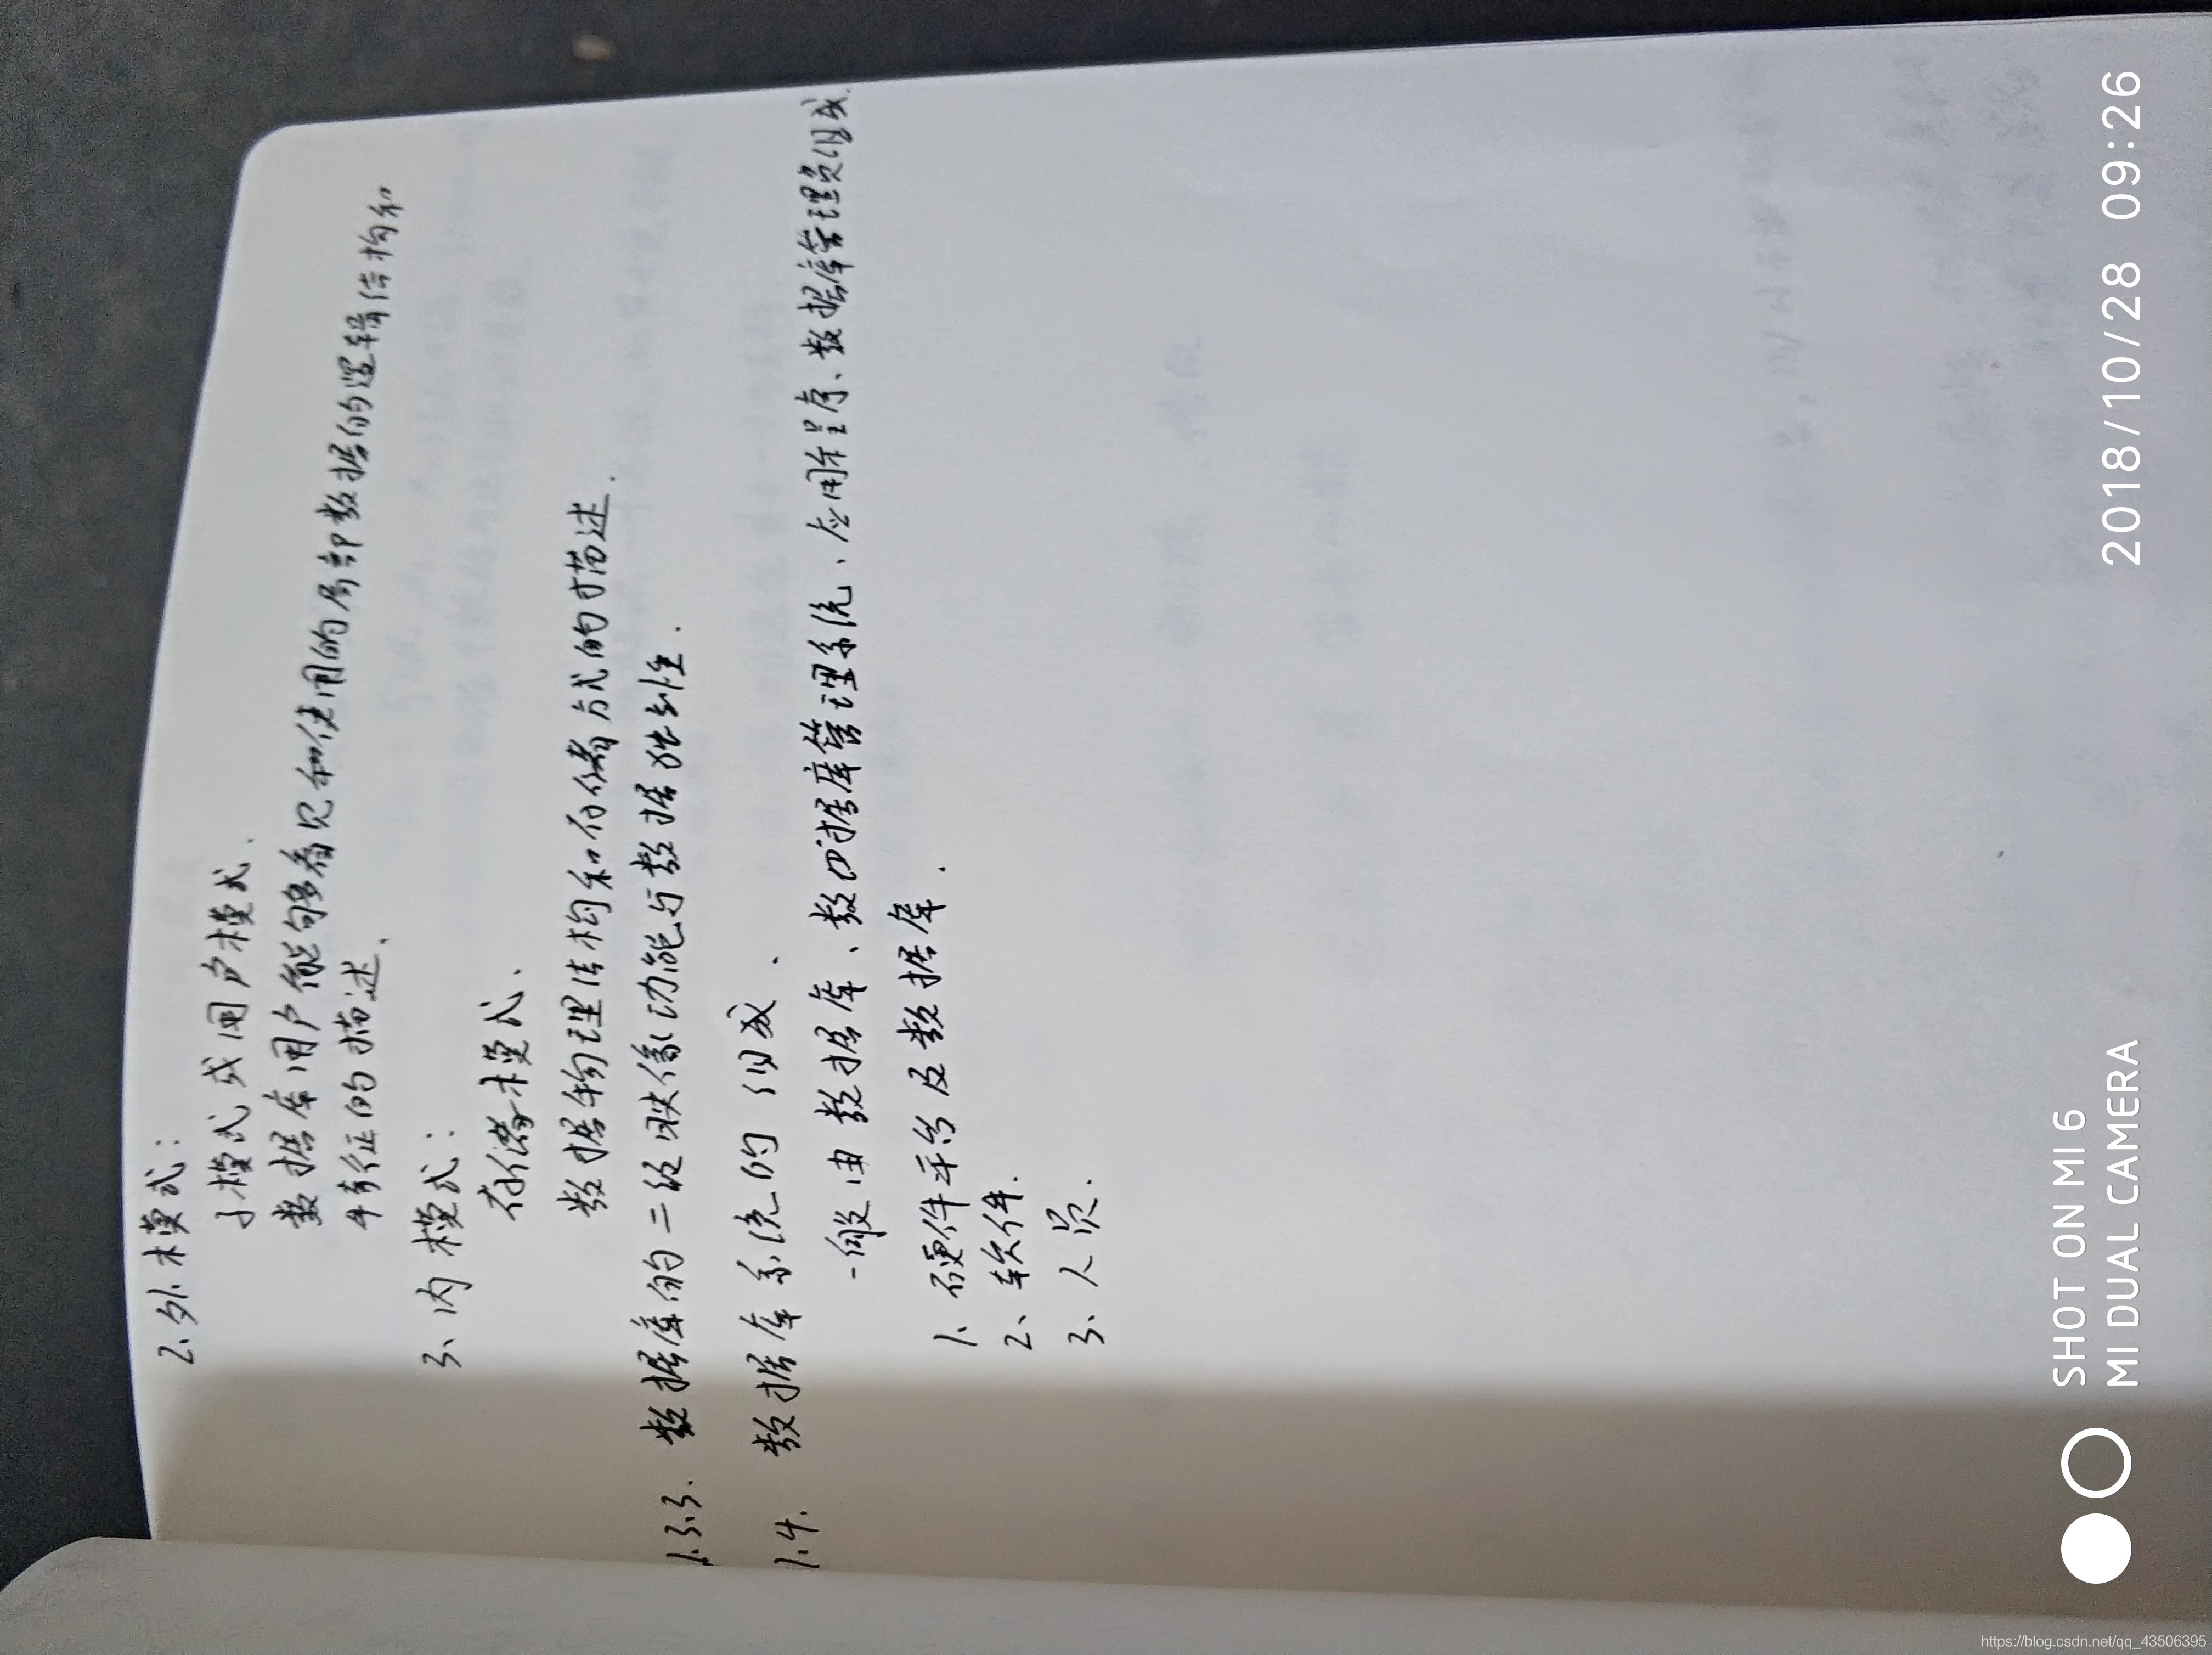 2、外模式：
子模式或用户模式、
数据库用户能够看见和使用的局部数据的逻辑结构和
特征的描述、
3、内模式：
存储模式、
数据物理结构和存储方式的描述.
1.3.3. 数据库的二级映像功能与数据独立性.
1.4. 数据库系统的组成.
一般由数据库、数据库管理系统、应用程序、数据库管理员组成.
1、硬件平台及数据库.
2、软件.
3、人员.
SHOT ON MI 6
MI DUAL CAMERA
2018/10/28 09:26
https://blog.csdn.net/qq_43506395